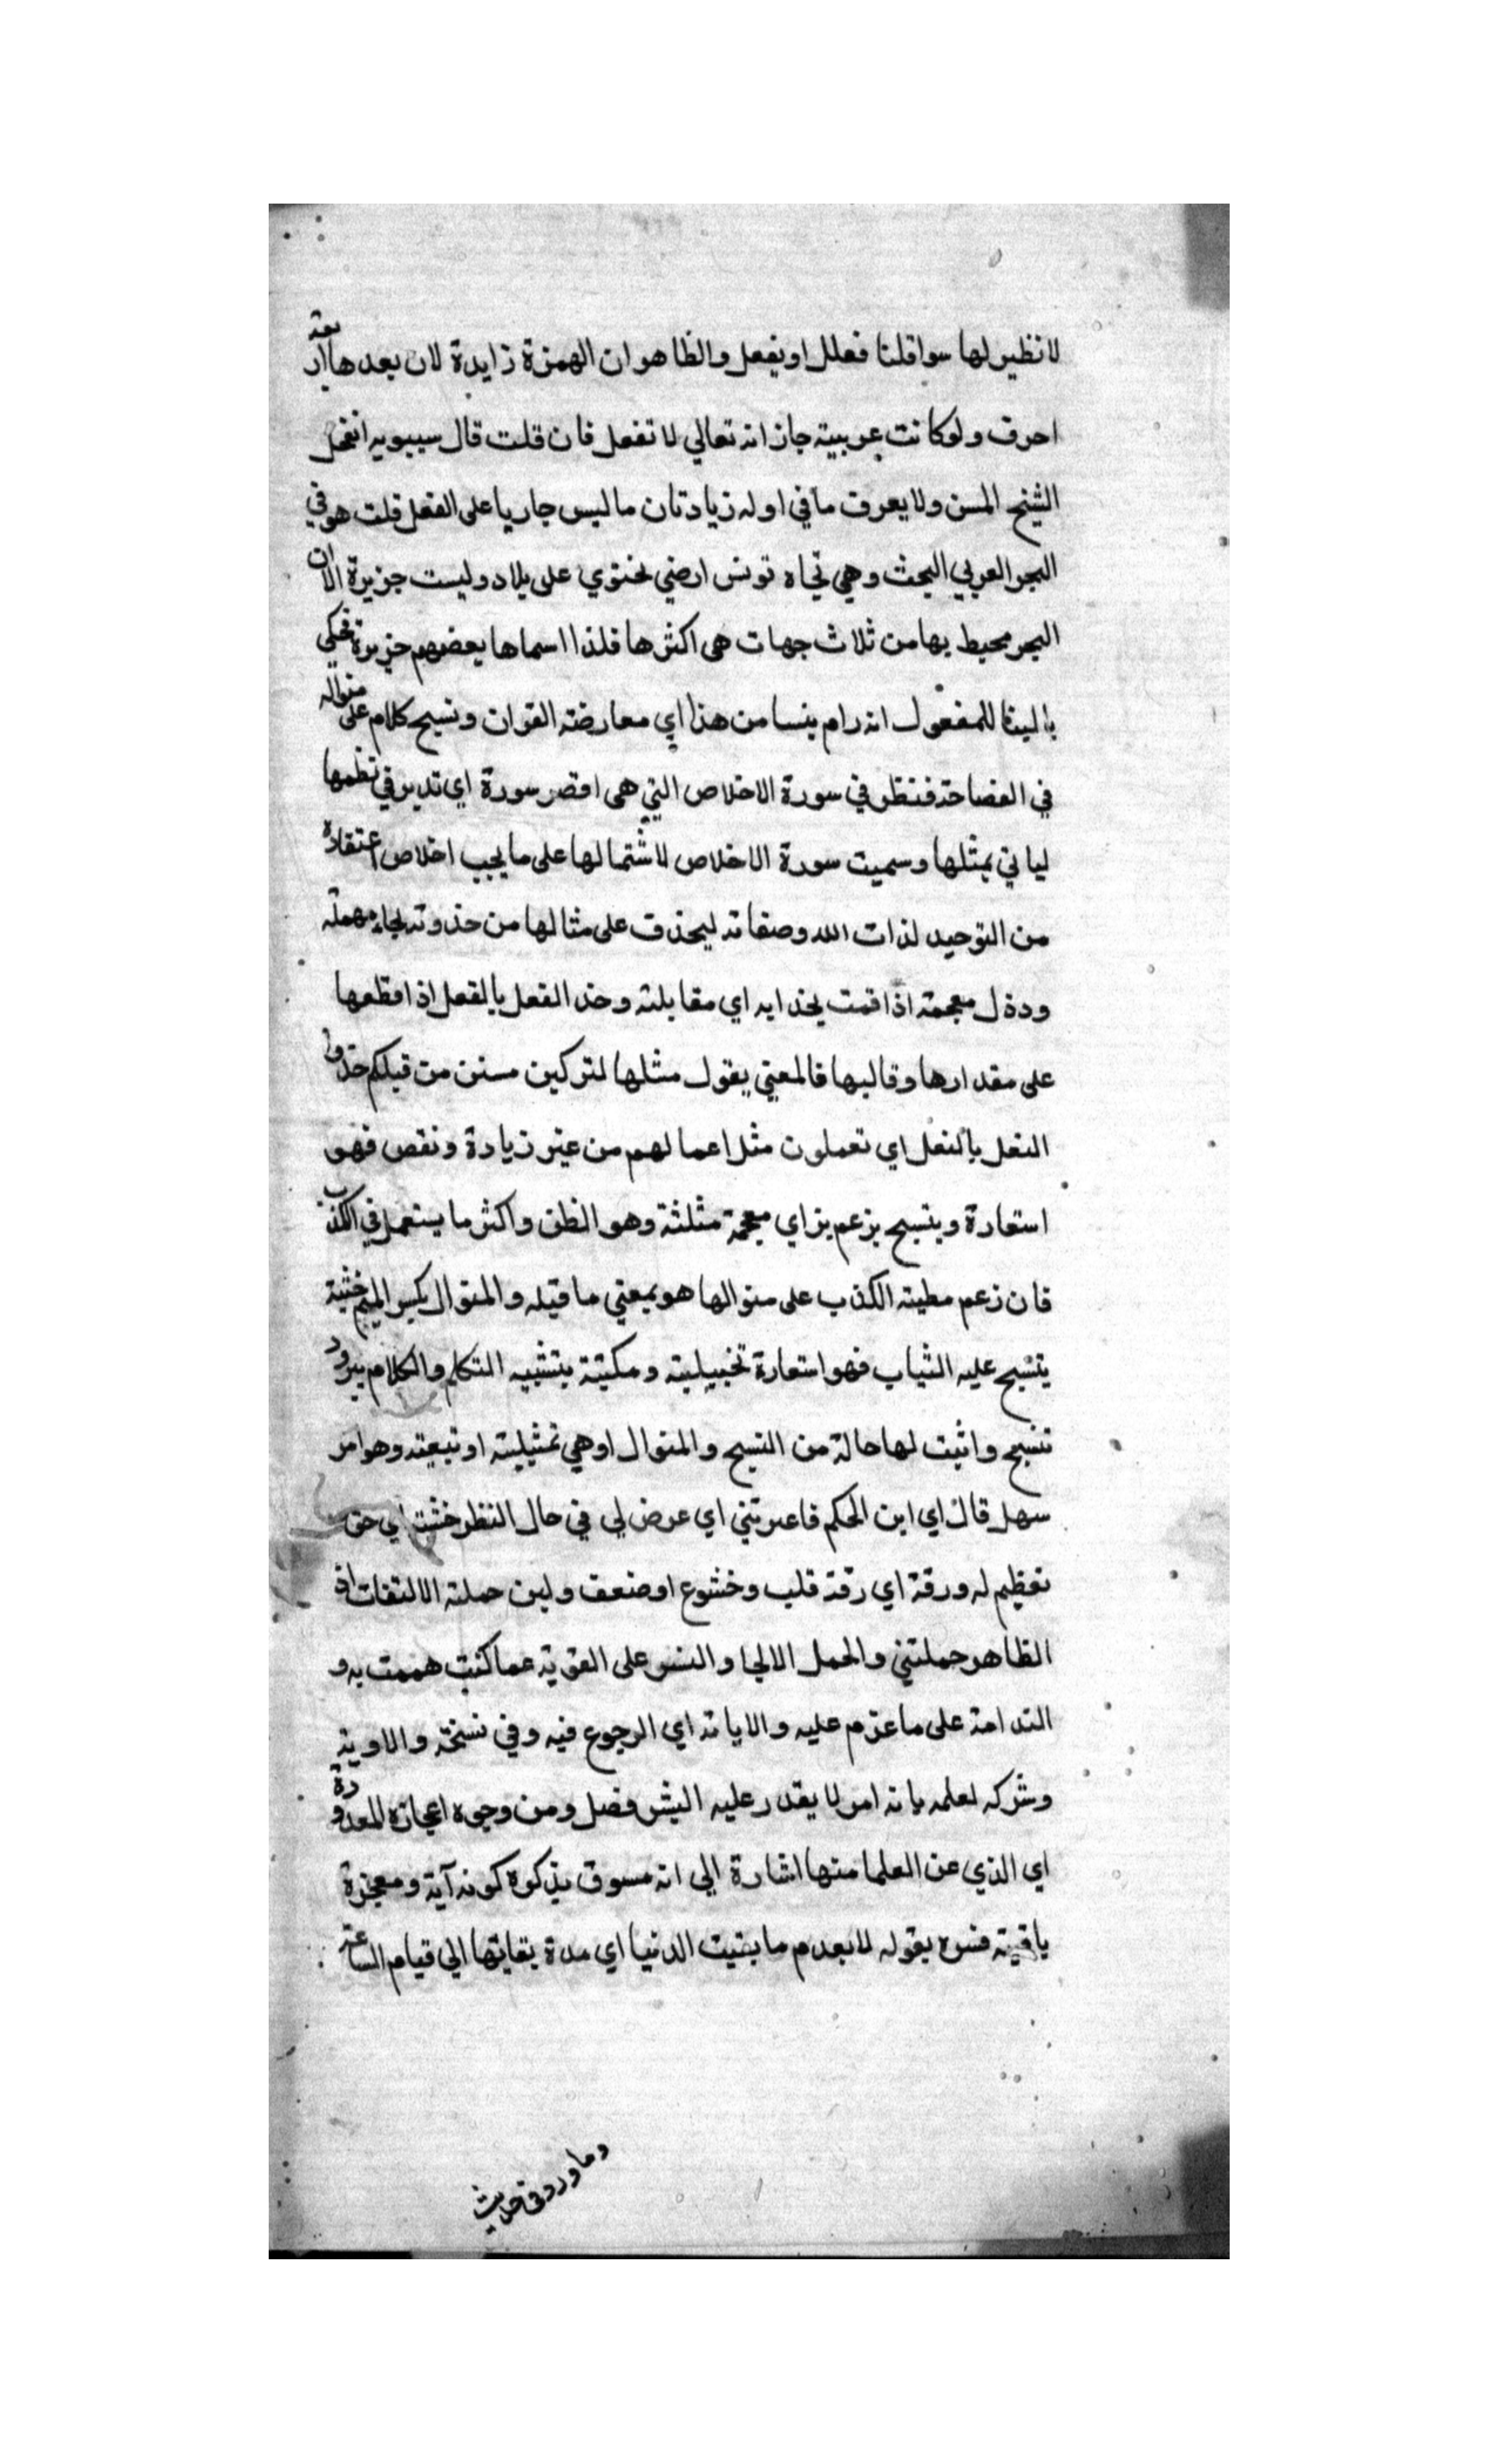 لا نظير لها سوا قلنا فعلل او يفعل والظاهر ان الهمزة زايدة لان بعدها اربعة
احرف ولو كانت عربية جاز انه تعالي لا تفعل فان قلت قال سيبويه انفحل
الشيخ المسن ولا يعرف ما في اوله زيادتان ما ليس جاريا على الفعل قلت هو في
البحر العربي البحث وهي تجاه تونس ارضي تحتوي على بلاد وليست جزيرة الا ان
البحر محيط بها من ثلاث جهات هى اكثرها فلذا اسماها بعضهم جزيرة فحكي
بالبينا للمفعول انه رام ينسا من هذا اي معارضة القران ونسيج كلام على منواله
في الفصاحة فنظر في سورة الاخلاص التي هى اقصر سورة اي تدبر في نظمها
لياتي بمثلها وسميت سورة الاخلاص لاشتمالها على ما يجب اخلاص اعتقاده
من التوحيد لذات الله وصفاته ليحذف على مثالها من حذوته بحاء مهملة
وذال معجمة اذا قمت بحذايه اي مقابلته وحذ الفعل بالفعل اذا قطعها
على مقدارها وقالبها فالمعني يقول مثلها لتركبن سنن من قبلكم حذوا
النعل بالنعل اي تعملون مثل اعمالهم من غير زيادة ونقص فهو
استعارة وينسج بزعم بزاي معجمة مثلثة وهو الظن واكثر ما يستعمل في الكذب
فان زعم مطية الكذب على منوالها هو بمعني ما قبله والمنوال بكسر الميم خشبة
ينسج عليه الثياب فهو استعارة تخييلية ومكنية بتشبيه التكلم والكلام ببرود
تنسج واثبت لها حالة من النسج والمنوال او هي تمثيلية او تبعية وهو امر
سهل قال اي ابن الحكم فاعترتني اي عرض لي في حال النظر خشية اي حق
تعظيم له ورقة اي رقة قلب وخشوع او ضعف ولين حملته الالتفات اذ
الظاهر حملتني والحمل الالجا والسر على التوبة عما كنت هممت به و
الندامة على ما عزم عليه والايابة اي الرجوع فيه وفي نسخة والاوبة
وشركه لعلمه بانه امر لا يقدر عليه البشر فصل ومن وجوه اعجازه المعدودة
اي الذي عن العلما منها اشارة الي انه مسوق بذكره كونه آية ومعجزة
باقية فسره بقوله لا بعدم ما بقيت الدنيا اي مدة بقايها الي قيام الساعة
وما ورد في حديث